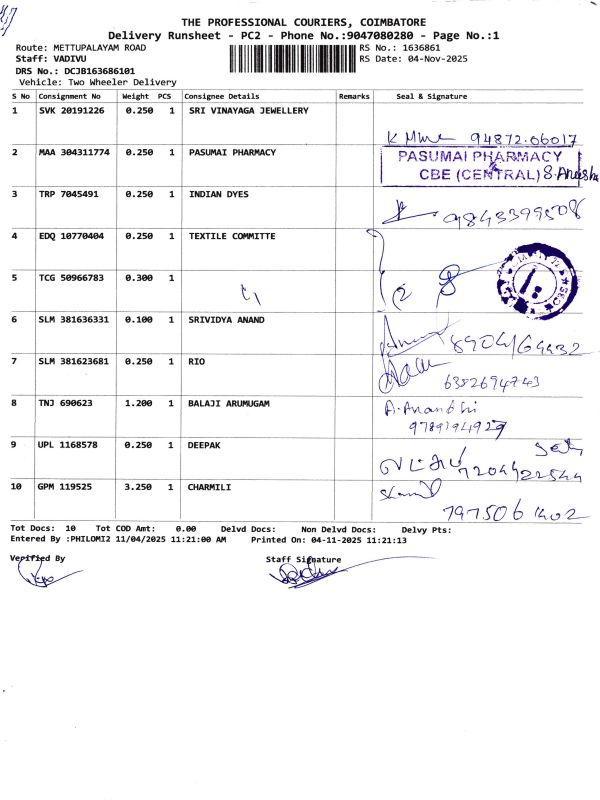 THE PROFESSIONAL COURIERS, COIMBATORE
Delivery Runsheet - PC2 - Phone No.:9047080280 - Page No.:1
Route: METTUPALAYAM ROAD RS No.: 1636861
Staff: VADIVU RS Date: 04-Nov-2025
DRS No.: DCJB163686101
Vehicle: Two Wheeler Delivery
S No Consignment No Weight PCS Consignee Details Remarks Seal & Signature
1 SVK 20191226 0.250 1 SRI VINAYAGA JEWELLERY
94872.06017
2 MAA 304311774 0.250 1 PASUMAI PHARMACY PASUMAI PHARMACY
CBE (CENTRAL)
3 TRP 7045491 0.250 1 INDIAN DYES
9843399508
4 EDQ 10770404 0.250 1 TEXTILE COMMITTE
5 TCG 50966783 0.300 1
6 SLM 381636331 0.100 1 SRIVIDYA ANAND
7 SLM 381623681 0.250 1 RIO
6382694743
8 TNJ 690623 1.200 1 BALAJI ARUMUGAM A.Anandhi
9789194929
9 UPL 1168578 0.250 1 DEEPAK
10 GPM 119525 3.250 1 CHARMILI
7975061402
Tot Docs: 10 Tot COD Amt: 0.00 Delvd Docs: Non Delvd Docs: Delvy Pts:
Entered By :PHILOMI2 11/04/2025 11:21:00 AM Printed On: 04-11-2025 11:21:13
Verified By Staff Signature